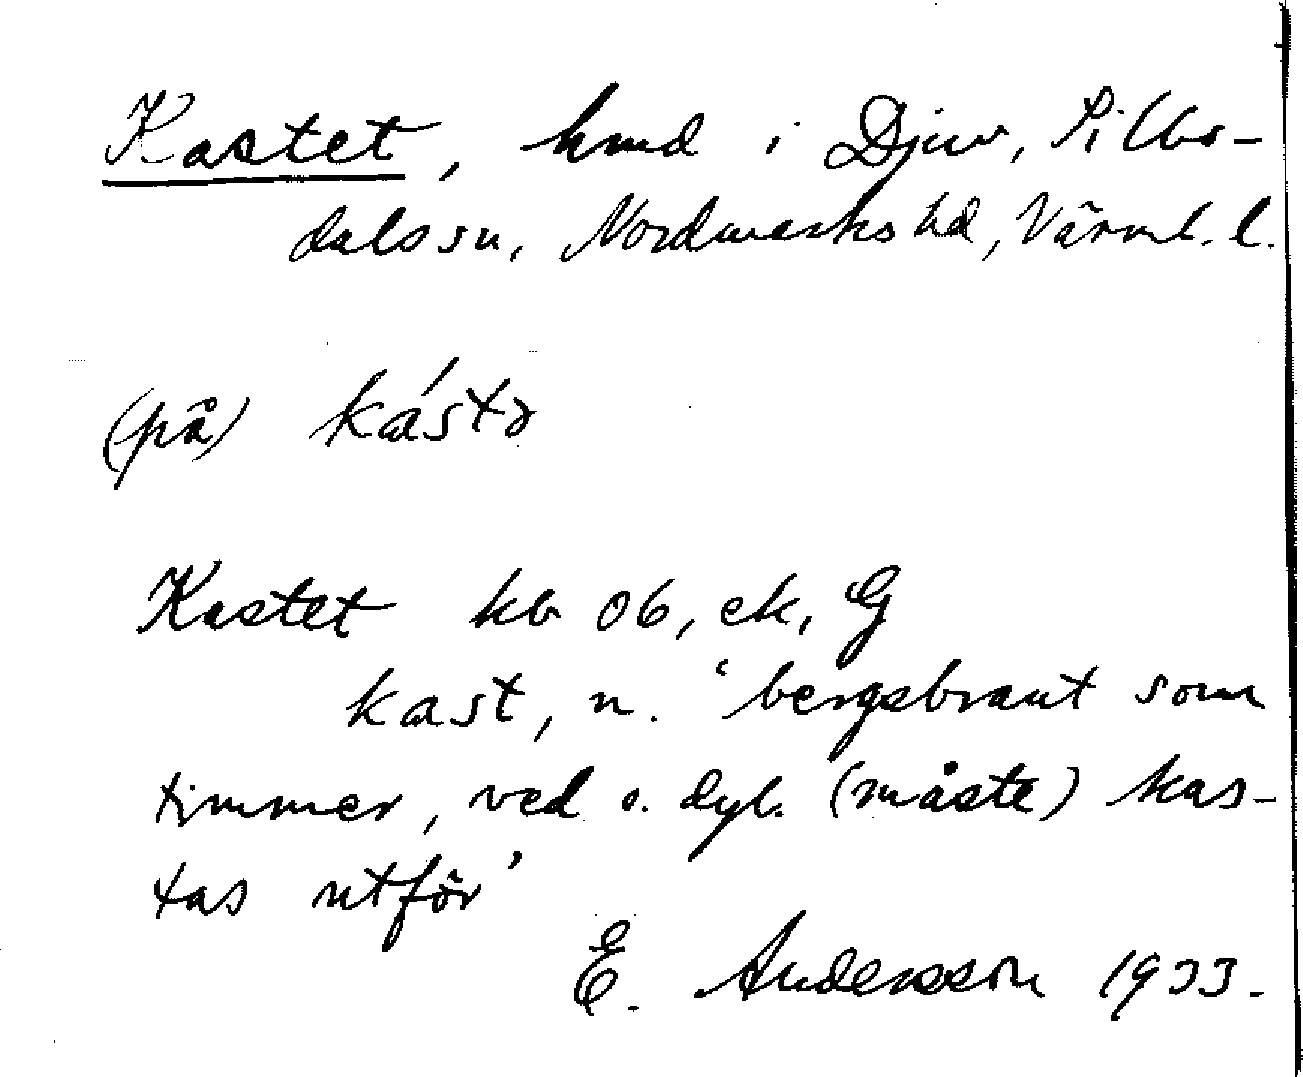 Kastet, hmd i Djuv, Sillbo-
dals sn, Nordmarks hd, Värml. l.
(på) kástə
Kastet kb 06, ek, G
kast, n. ‘bergsbrant som
timmer, ved o. dyl. (måste) kas-
tas utför’
E. Andersson 1933.